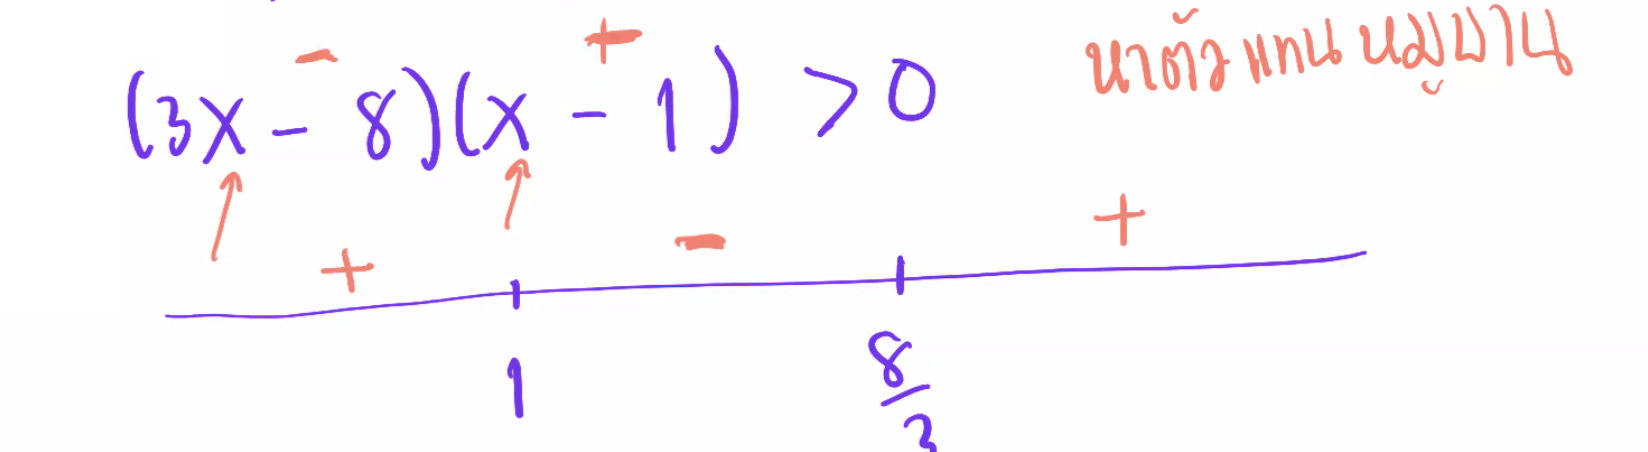 (3x - 8)(x - 1) > 0
หาตัวแทนหมู่บ้าน
- +
+ - +
1 8/3